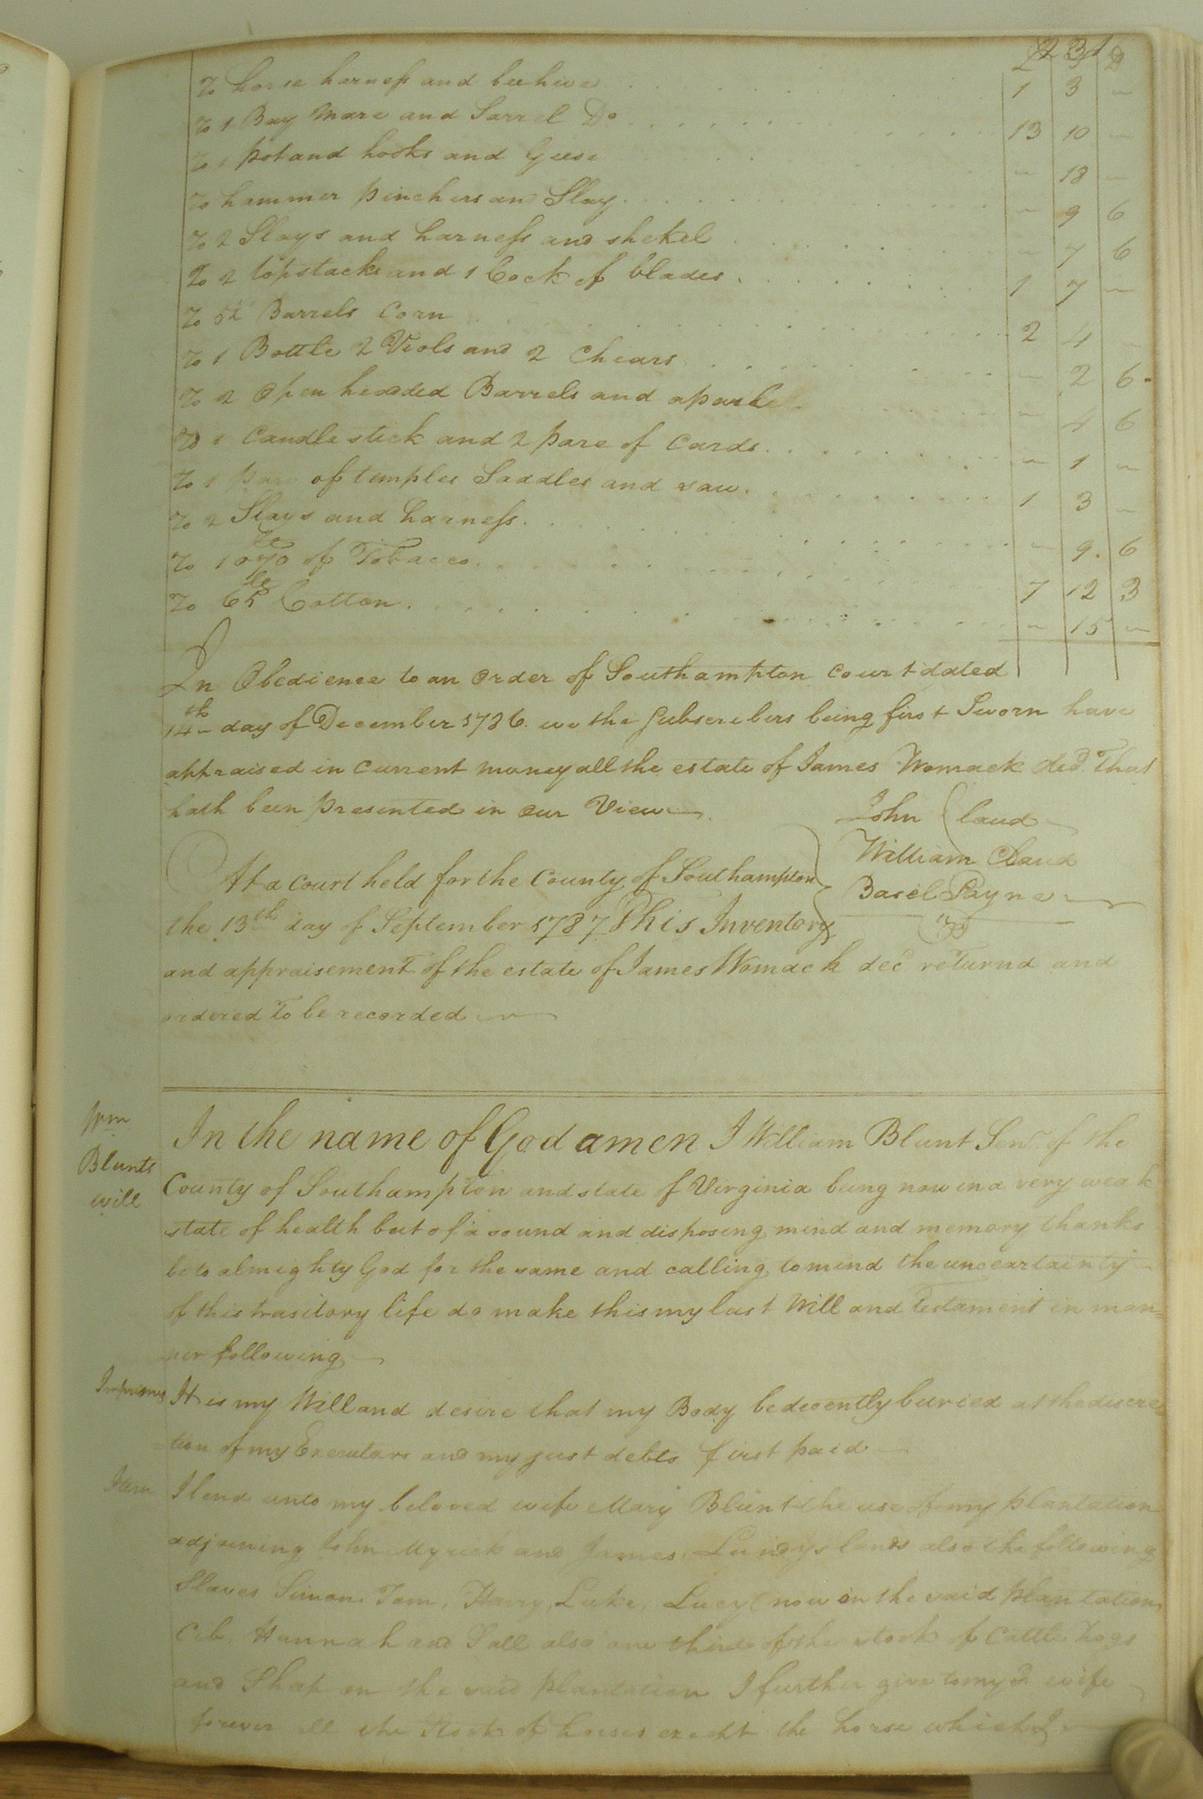 231
£ S D
To horse harness and beehive 1 3 –
To 1 Bay Mare and Sarrel Do 13 10 –
To 1 pot and hooks and Geese – 18 –
To hammer pinchers and Slay – 9 6
To 2 Slays and harness and shekel – 7 6
To 2 topstacks and 1 Cock of blades 1 7 –
To Barrels Corn 2 4 –
To 1 Bottle 2 Viols and 2 Chears – 2 6
To 2 Open headed Barrels and a – 4 6
To 1 Candle stick and 2 pare of Cards – 1 –
To 1 pare of temples Saddles and saw 1 3 –
To 2 Slays and harness – 9 6
To 1070 of Tobacco 7 12 3
To 65 Cotton – 15 –
In Obedience to an Order of Southampton Court dated
14th day of December 1786 we the Subscribers being first Sworn have
appraised in Current money all the estate of James Womack decd That
hath been presented in our View
John Claud
William Claud
Basel Payne
At a Court held for the County of Southampton
the 13th day of September 1787 This Inventory
and appraisement of the estate of James Womack decd returnd and
ordered to be recorded
Wm
Blunts
will
In the name of God amen I William Blunt Senr of the
County of Southampton and state of Virginia being now in a very weak
state of health but of a sound and disposing mind and memory thanks
be to almighty God for the same and calling to mind the uncertainty
of this trasitory life do make this my last Will and Testament in man=
ner following
Imprimis It is my Will and desire that my Body be decently buried at the discre=
=tion of my Executors and my just debts first paid
Item I lend unto my beloved wife Mary Blunt the use of my plantation
adjoining John Myrick and James Lundys lands also the following
Slaves Simon, Tom, Harry, Luke, Lucy (now on the said plantation
Cib, Hannah and Sall also one third of the stock of Cattle hogs
and Sheep on the said plantation I further give to my sd wife
forever all the stock of horses except the horse which I